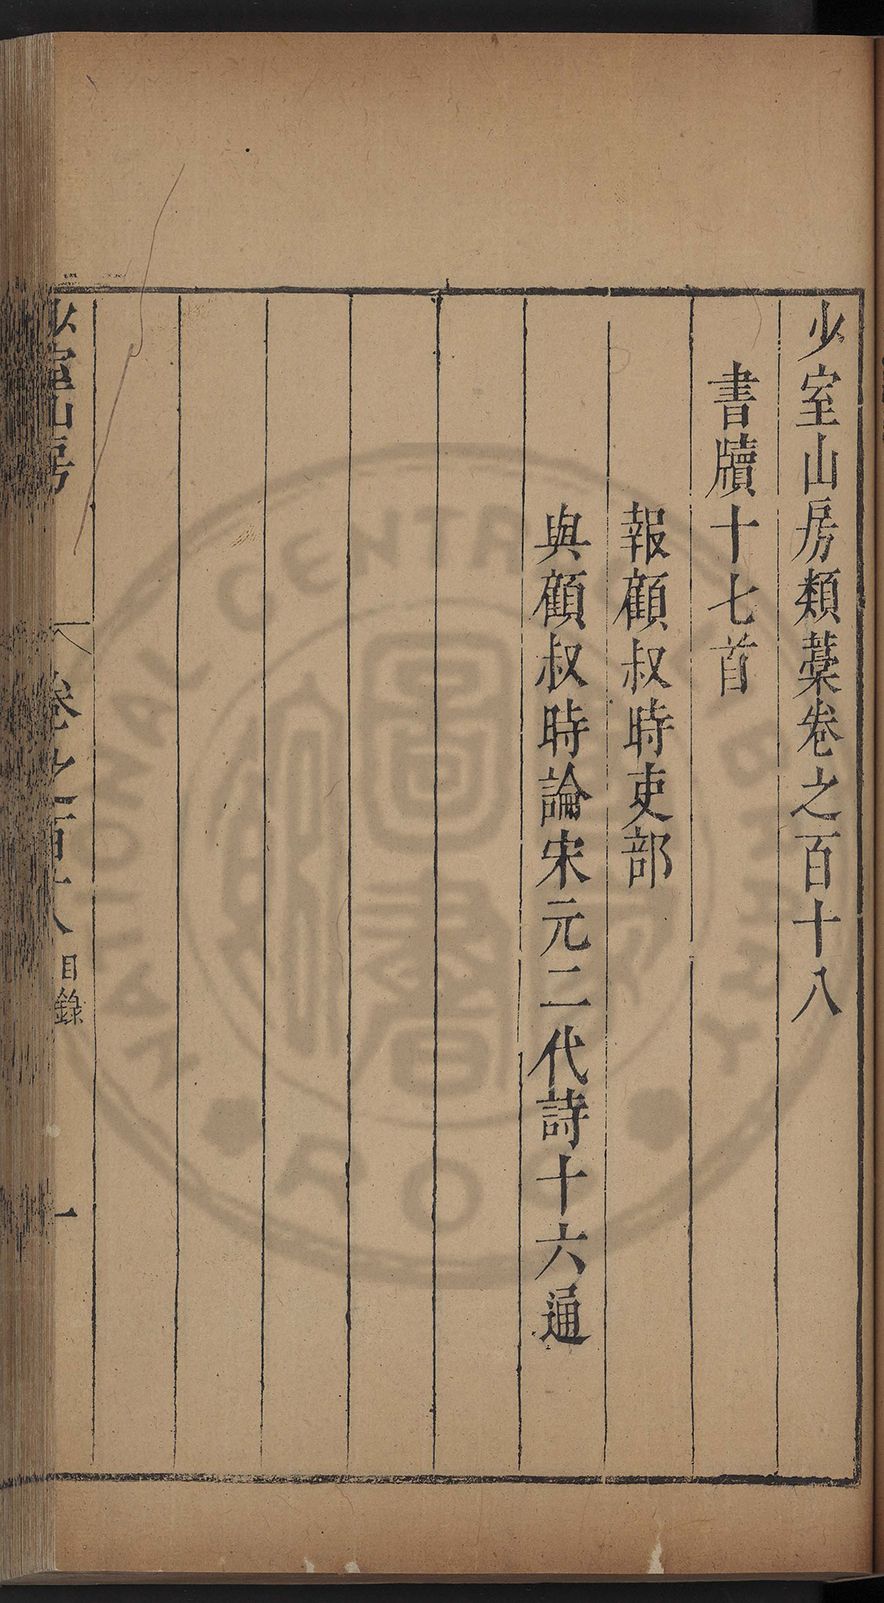 少室山房類藁卷之百十八
書牘十七首
報顧叔時吏部
與顧叔時論宋元二代詩十六通
少室山房
卷之百十八
目錄
一